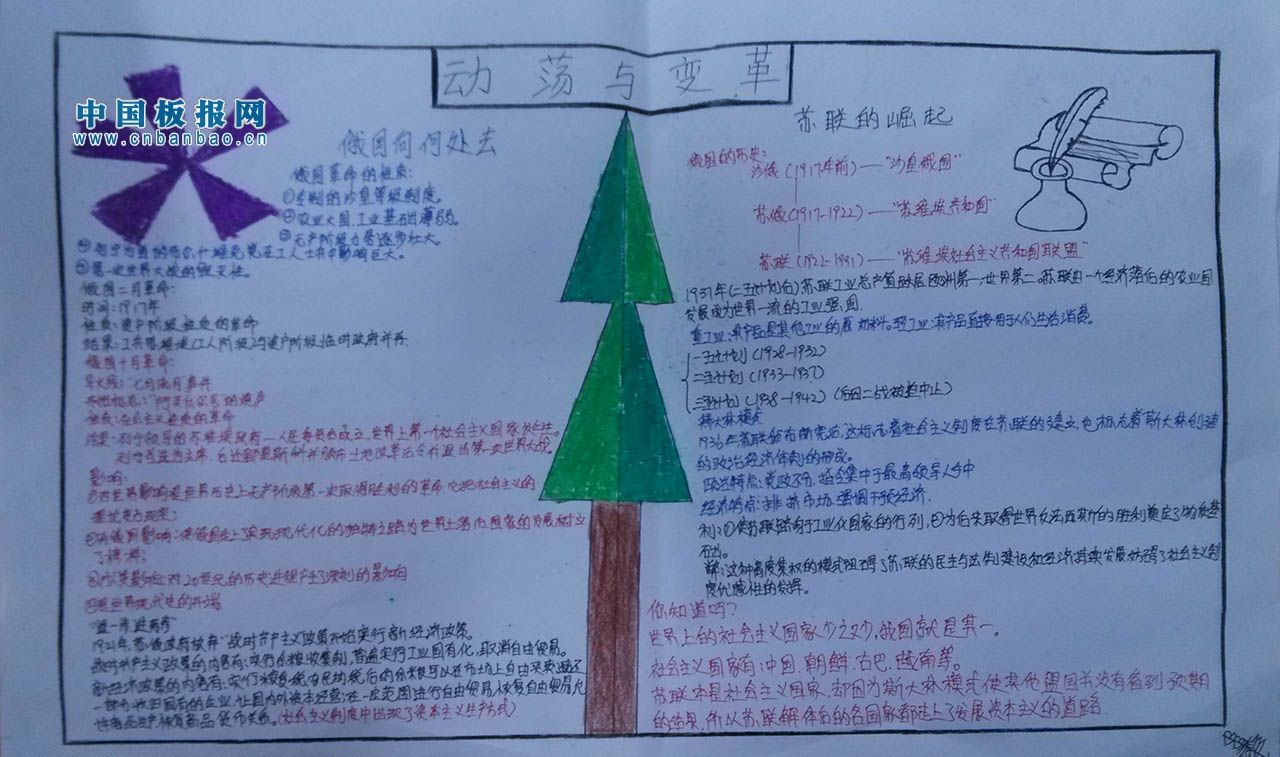 动荡与变革
中国板报网
www.cnbanbao.cn
俄国向何处去
俄国革命的性质:
①专制的沙皇等级制度。
②农业大国,工业基础薄弱。
③无产阶级力量逐步壮大。
④列宁为首的布尔什维克党在工人士兵中影响巨大。
⑤第一次世界大战的毁灭性。
俄国二月革命:
时间:1917年
性质:资产阶级性质的革命
结果:工兵苏维埃(工人阶级)与资产阶级临时政府并存
俄国十月革命:
导火线:"七月流血"事件
开始标志:"阿芙乐尔号"的炮声
性质:社会主义性质的革命
结果:列宁领导的苏维埃政府——人民委员会成立,世界上第一个社会主义国家诞生。
列宁当选为主席,
影响:
①对世界影响是世界历史上无产阶级第一次取得胜利的革命,也把社会主义的
理论变为现实;
②对俄国影响:使俄国走上了实现现代化的独特之路为世界上落后国家的发展树立
了榜样;
③深远影响:对20世纪的历史进程产生了深刻的影响
④是世界现代史的开端
1921年,苏俄政府放弃"战时共产主义"政策开始实行新经济政策。
战时共产主义政策的内容有:实行余粮收集制,普遍实行工业国有化,取消自由贸易。
(社会主义制度中出现了资本主义生产方式)
苏联的崛起
俄国的历史:
沙俄(1917年前)——"沙皇俄国"
苏俄(1917-1922)——"苏维埃共和国"
苏联(1922-1991)——"苏维埃社会主义共和国联盟"
1937年(二五计划后)苏联工业总产值跃居欧洲第一,世界第二。苏联由一个经济落后的农业国
发展成为世界一流的工业强国.
重工业:其产品是其他工业的原材料。轻工业:其产品直接用于人们生活消费。
一五计划(1928-1932)
二五计划(1933-1937)
三五计划(1938-1942)(后因二战被迫中止)
斯大林模式
1936年苏联颁布新宪法,这标志着社会主义制度在苏联的建立,也标志着斯大林创建
的政治经济体制的形成。
政治特点:党政不分,指令集中于最高领导人手中
经济特点:排斥市场,强调干预经济.
利:①使苏联跻身于工业化国家的行列,②为后来取得世界反法西斯的胜利奠定了物质基
石出。
弊:这种高度集权的模式阻碍了苏联的民主与法制建设和经济持续发展妨碍了社会主义制
度优越性的发挥。
你知道吗?
世界上的社会主义国家少之又少,我国就是其一。
社会主义国家有:中国.朝鲜.古巴.越南等。
苏联本是社会主义国家,却因为斯大林模式使其他盟国并没有看到预期
的结果,所以苏联解体后的各国家都走上了发展资本主义的道路.